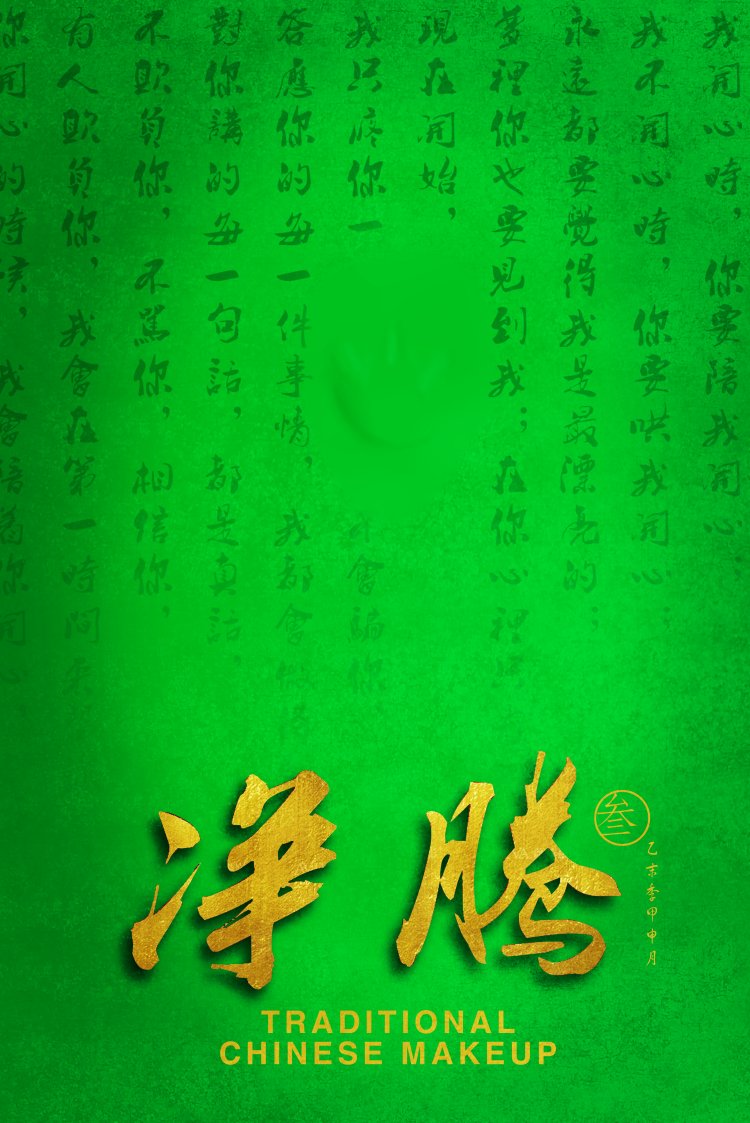 我開心時，你要陪我開心，
我不開心時，你要哄我開心；
永遠都要覺得我是最漂亮的；
夢裡你也要見到我；在你心裡
現在開始，
我只疼你一
會騙你
答應你的每一件事情，我都會做
對你講的每一句話，都是真話，
不欺負你，不罵你，相信你，
有人欺負你，我會在第一時間來
你開心的時候，我會陪着你開心
净腾
叁
乙未季甲申月
TRADITIONAL
CHINESE MAKEUP